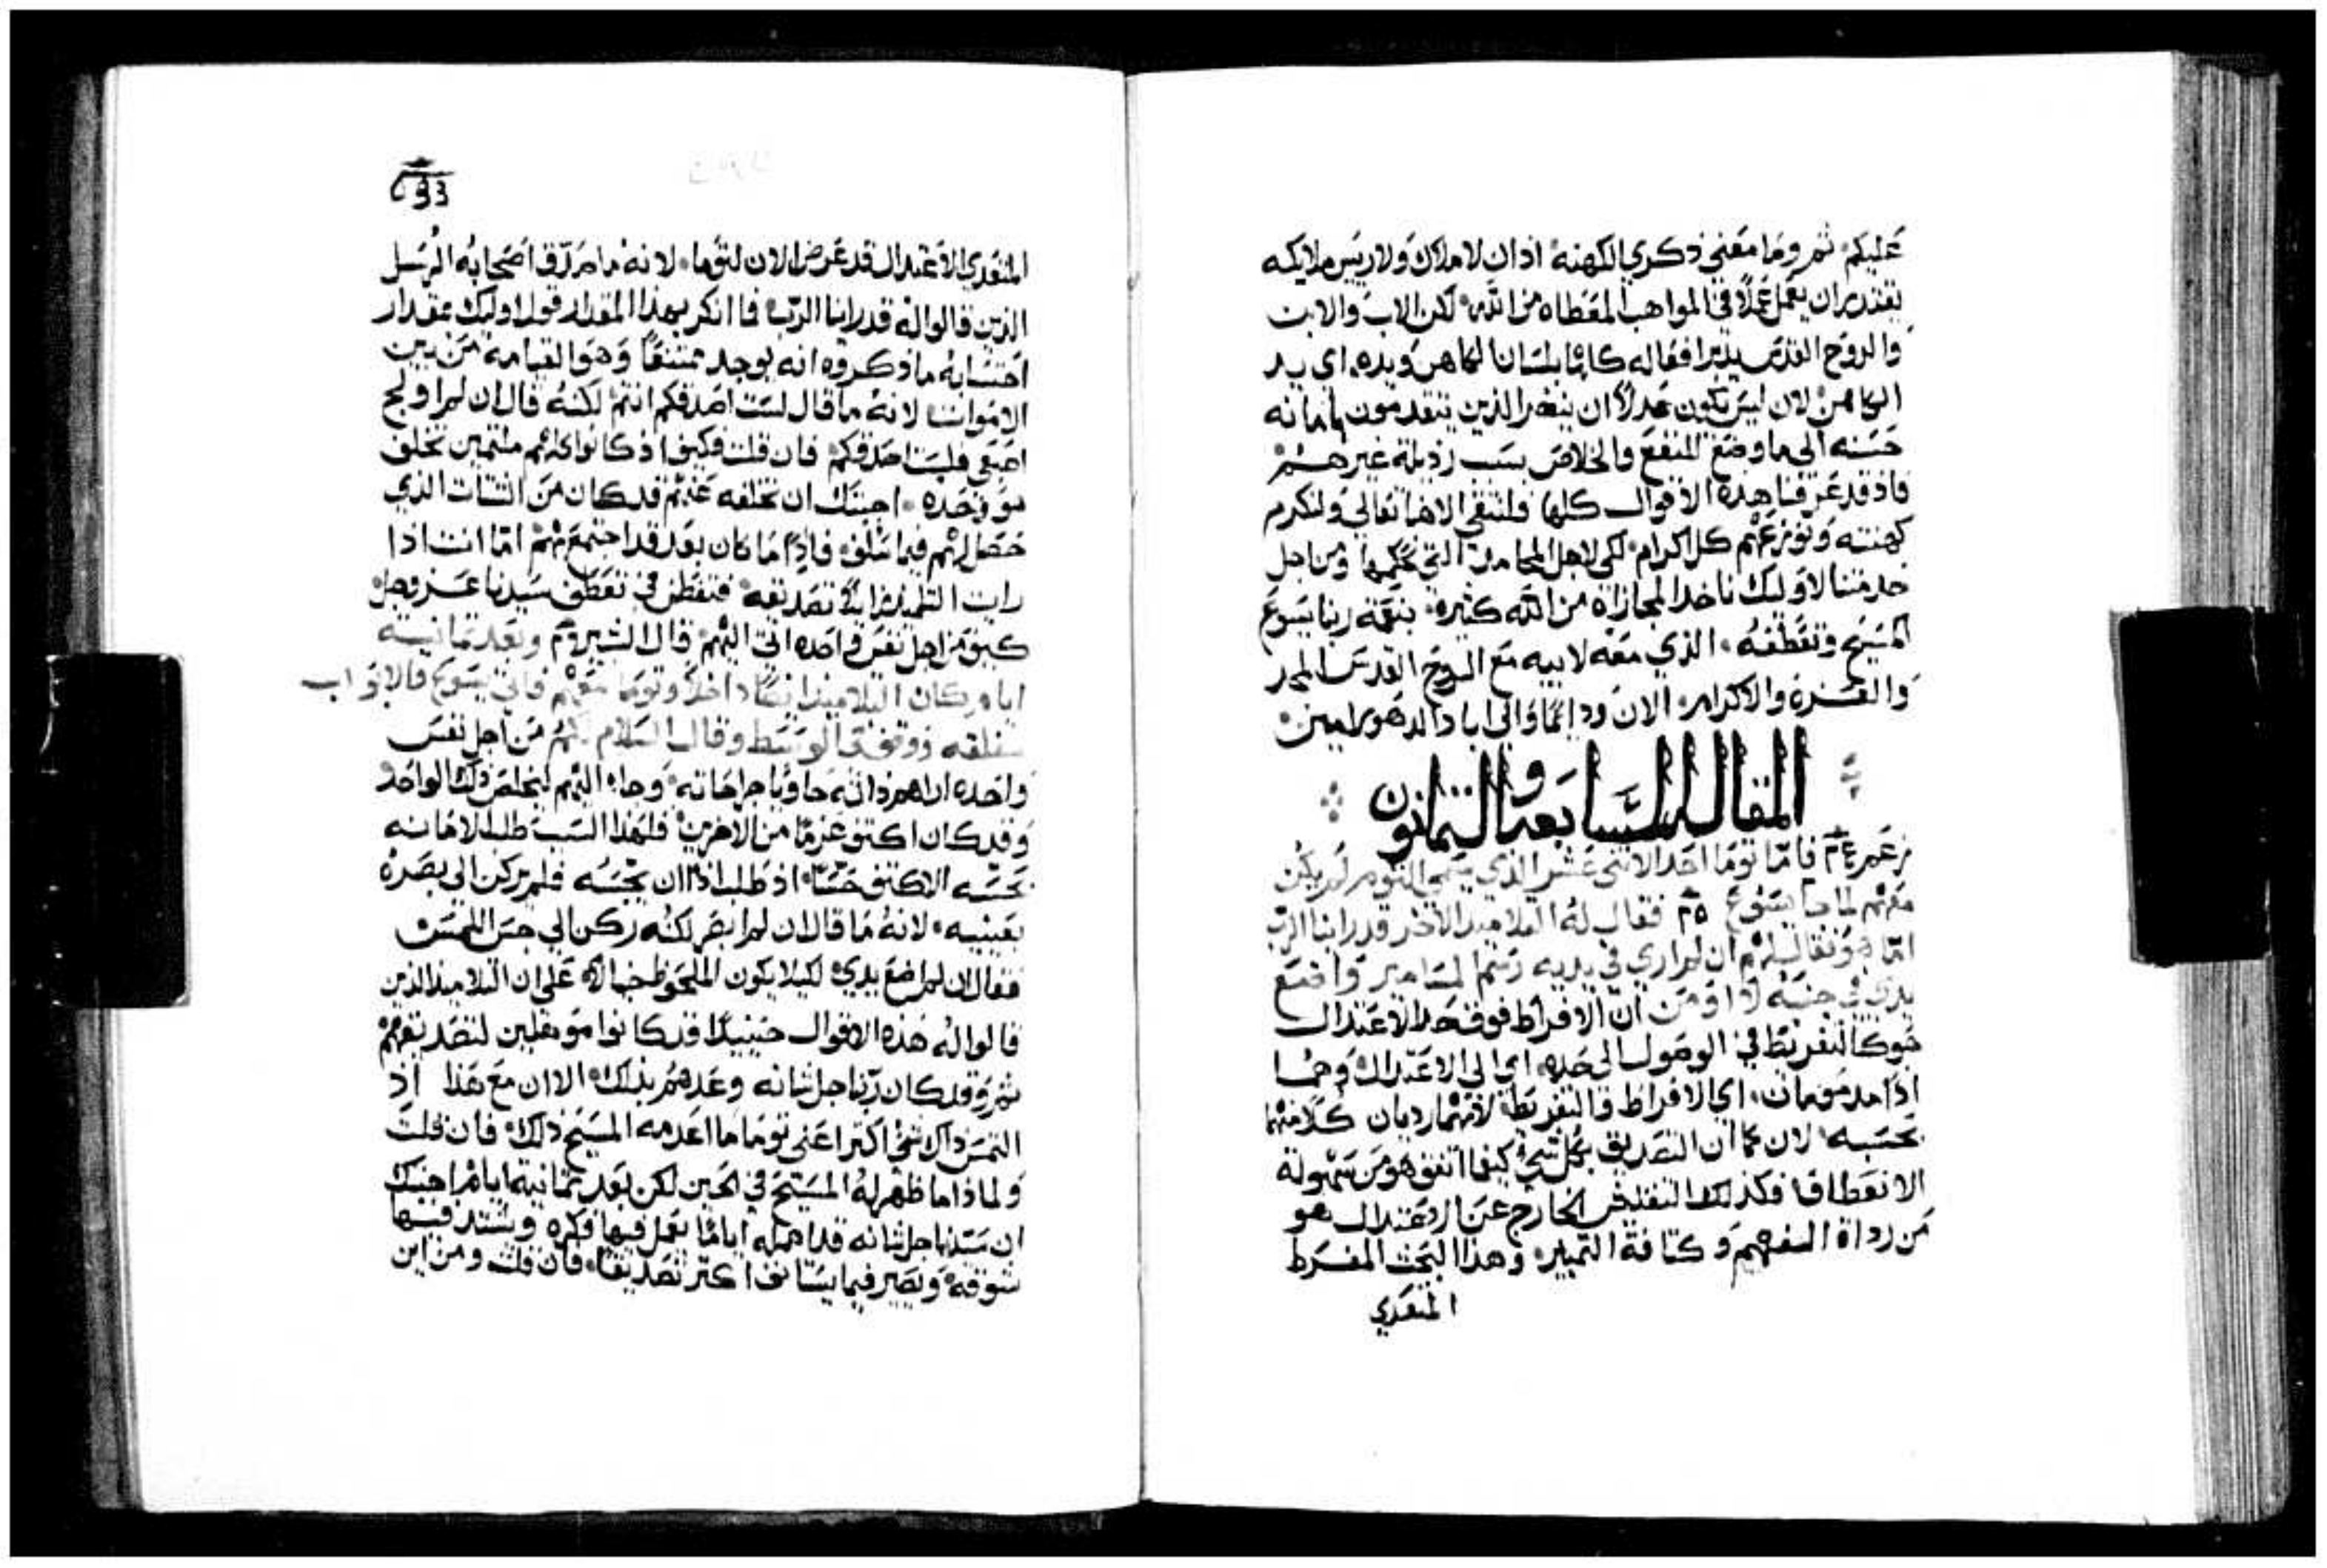 عليكم ثم وما معني ذكري الكهنه اذ ان لا ملاك ولا ريس ملايكه
يقتدر ان يعمل عملاً في المواهب المعطاه من الله لكن الاب والابن
والروح القدس يدبر افعاله كلها بلسان الكاهن ويده اي يد
الكاهن لان ليس يكون عدلاً ان يتضر الذين يتقدمون بامانه
حسنه الي ما وضع للمنفع والخلاص بسبب رذيلة غيرهم
فاذ قد عرفنا هذه الاقوال كلها فلنتقي الاهنا تعالي ولنكرم
كهنته ونوزعهم كل اكرام لكي لاجل المحامد التي نحكمها ومن اجل
خدمتنا لاوليك ناخد المجازاه من الله كثيره بنعمة ربنا يسوع
المسيح وتعطفه الذي معه لابيه مع الروح القدس المجد
والعزة والاكرام الان ودائماً والي اباد الدهور امين
المقالة السابعه والثمانون
فاما توما احد الاثني عشر الذي يسمي التوم لم يكن
معهم لما جا يسوع فقال له التلاميد الاخر قد راينا الرب
اما هو فقال لهم ان لم اري في يديه رسم المسامير واضع
يدي في جنبه لا اومن ان الافراط فوق حد الاعتدال
هو كالتفريط في الوصول الي حده اي الي الاعتدال وهما
اذا مدمومان اي الافراط والتفريط لانهما رديان كلاهما
بحسبه لان كما ان التصديق بكل شي كيفما اتفق هو من سهولة
الانعطاف فكذلك التفلحص الخارج عن الاعتدال هو
من رداة الفهم وكثافة التمييز وهذا البحث المفرط
المتعدي
المتعدي الاعتدال قد عرض الان لتوما لانه ما صدق اصحابه الرسل
الذين قالوا له قد راينا الرب فما انكر بهذا المقدار قول اوليك بمقدار
احتسابه ما ذكروه انه يوجد ممتنعاً وهو القيامة من بين
الاموات لانه ما قال لست اصدقكم انتم لكنه قال ان لم اولج
اصبعي فلست اصدقكم فان قلت فكيف اذ كانوا كلهم ملتمين تخلف
هو وحده اجبتك ان تخلفه عنهم قد كان من الشتات الذي
حصل لهم فيما سلف فاذاً ما كان بعد قد اجتمع معهم اما انت اذا
رايت التلميذ زايلاً تصديقه فتفطن في تعطف سيدنا عز وجل
كيف من اجل نفس واحده اتي اليهم قال البشير وبعد ثمانية
ايام كان التلاميد ايضاً داخلاً وتوما معهم فاتي يسوع والابواب
مغلقه ووقف في الوسط وقال السلام لكم من اجل نفس
واحده اراهم ذاته حاوياً جراحاته وجاء اليهم ليخلص ذلك الواحد
وقد كان اكثف عزماً من الاخرين فلهذا السبب طلب الامانه
بحسه الاكثف حساً اذ طلب اذاً ان يجسه فلم يركن الي بصره
بعينيه لانه ما قال ان لم ابصر لكنه ركن الي حس اللمس
فقال ان لم اضع يدي لكيلا يكون الملحوظ خيالاً علي ان التلاميذ الذين
قالوا له هذه الاقوال حينيداً قد كانوا موهلين لتصديقهم
ثم وقد كان ربنا جل شانه وعدهم بذلك الا ان مع هذا اذ
التمس ذاك شي اكثر اعني توما ما اعدمه المسيح ذلك فان قلت
ولماذا ما ظهر له المسيح في الحين لكن بعد ثمانية ايام اجبتك
ان سيدنا جل شانه قد امهله اياماً يعمل فيها فكره ويشتد فيها
شوقه ويصير فيما يستانف اكثر تصديقاً فان قلت ومن اين